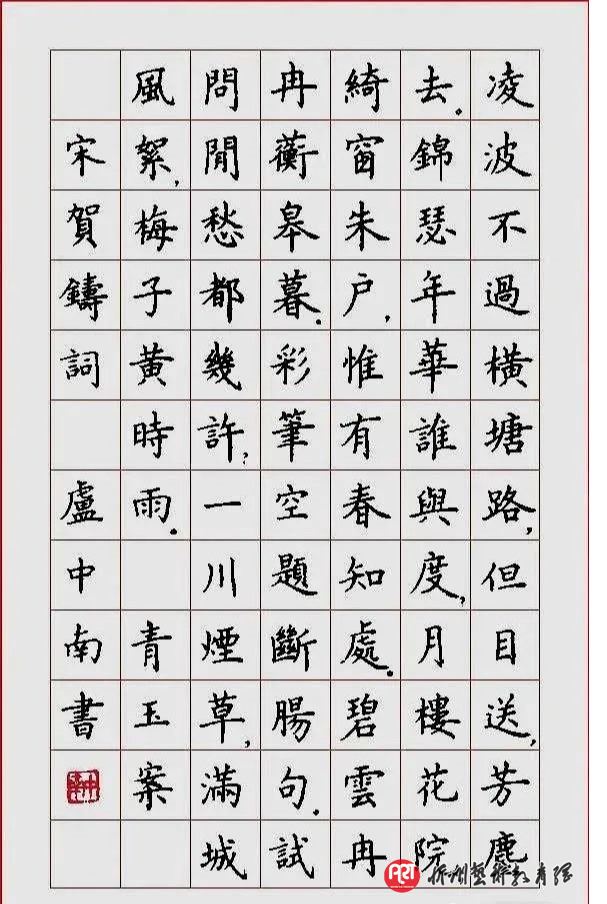 凌波不過橫塘路,但目送,芳塵
去。錦瑟年華誰與度,月樓花院
綺窗朱户,惟有春知處。碧雲冉
冉蘅皋暮。彩筆空題斷腸句。試
問閒愁都幾許?一川煙草,滿城
風絮,梅子黄時雨。 青玉案
宋賀鑄詞 盧中南書
ART